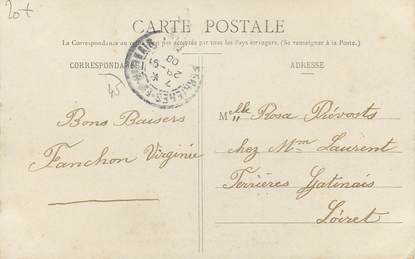 20+
CARTE POSTALE
La Correspondance au recto n'est pas acceptée par tous les Pays étrangers. (Se renseigner à la Poste.)
CORRESPONDANCE
ADRESSE
45
Bons Baisers
Fanchon Virginie
Melle Rosa Prévosts
chez Mm Laurent
Ferrières Gatinais
Loiret